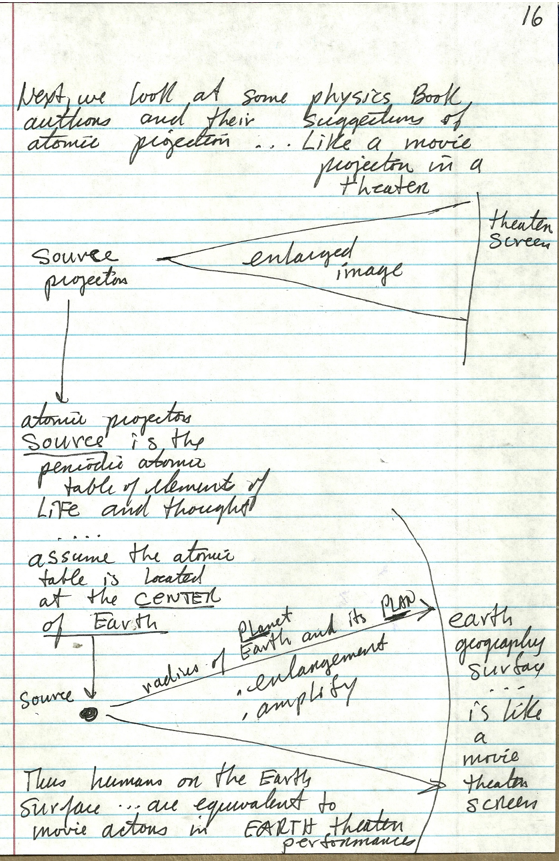 16
Next, we look at some physics Book
authors and their suggestions of
atomic projection ... Like a movie
projector in a
theater
theater
screen
Source
projectors
enlarged
image
atomic projectors
Source is the
periodic atomic
table of element of
LiFe and thought
....
assume the atomic
table is located
at the CENTER
of Earth
Source
radius of Planet
Earth and its PLAN
. enlargement
. amplify
earth
geography
surface
...
is like
a
movie
theater
screen
Thus humans on the Earth
surface ... are equivalent to
movie actors in EARTH theater
performances